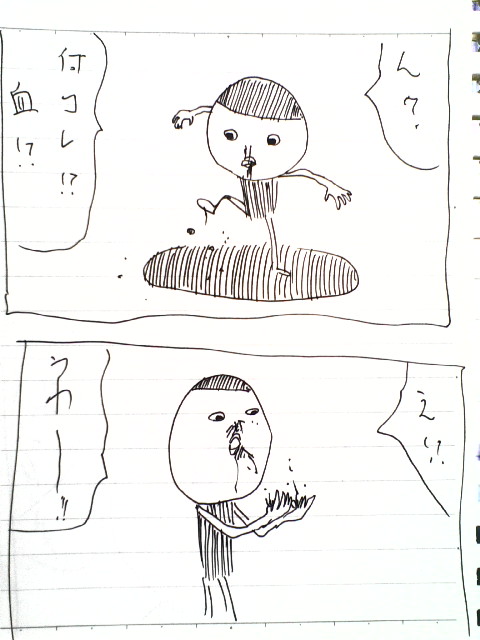 ん?
何コレ!?
血!?
え!?
うわー!!